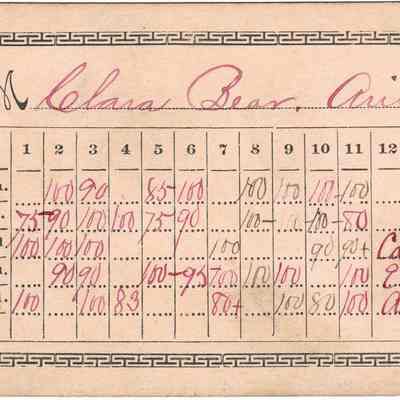 M Clara Bear. Ari
1 2 3 4 5 6 7 8 9 10 11 12
100 90 85 100 100 100 100 100
75 90 100 100 75 90 100 100 80
100 100 100 100 90 90+ Ca
90 90 100 95 100 100 100 100
100 100 83 80+ 100 80 100